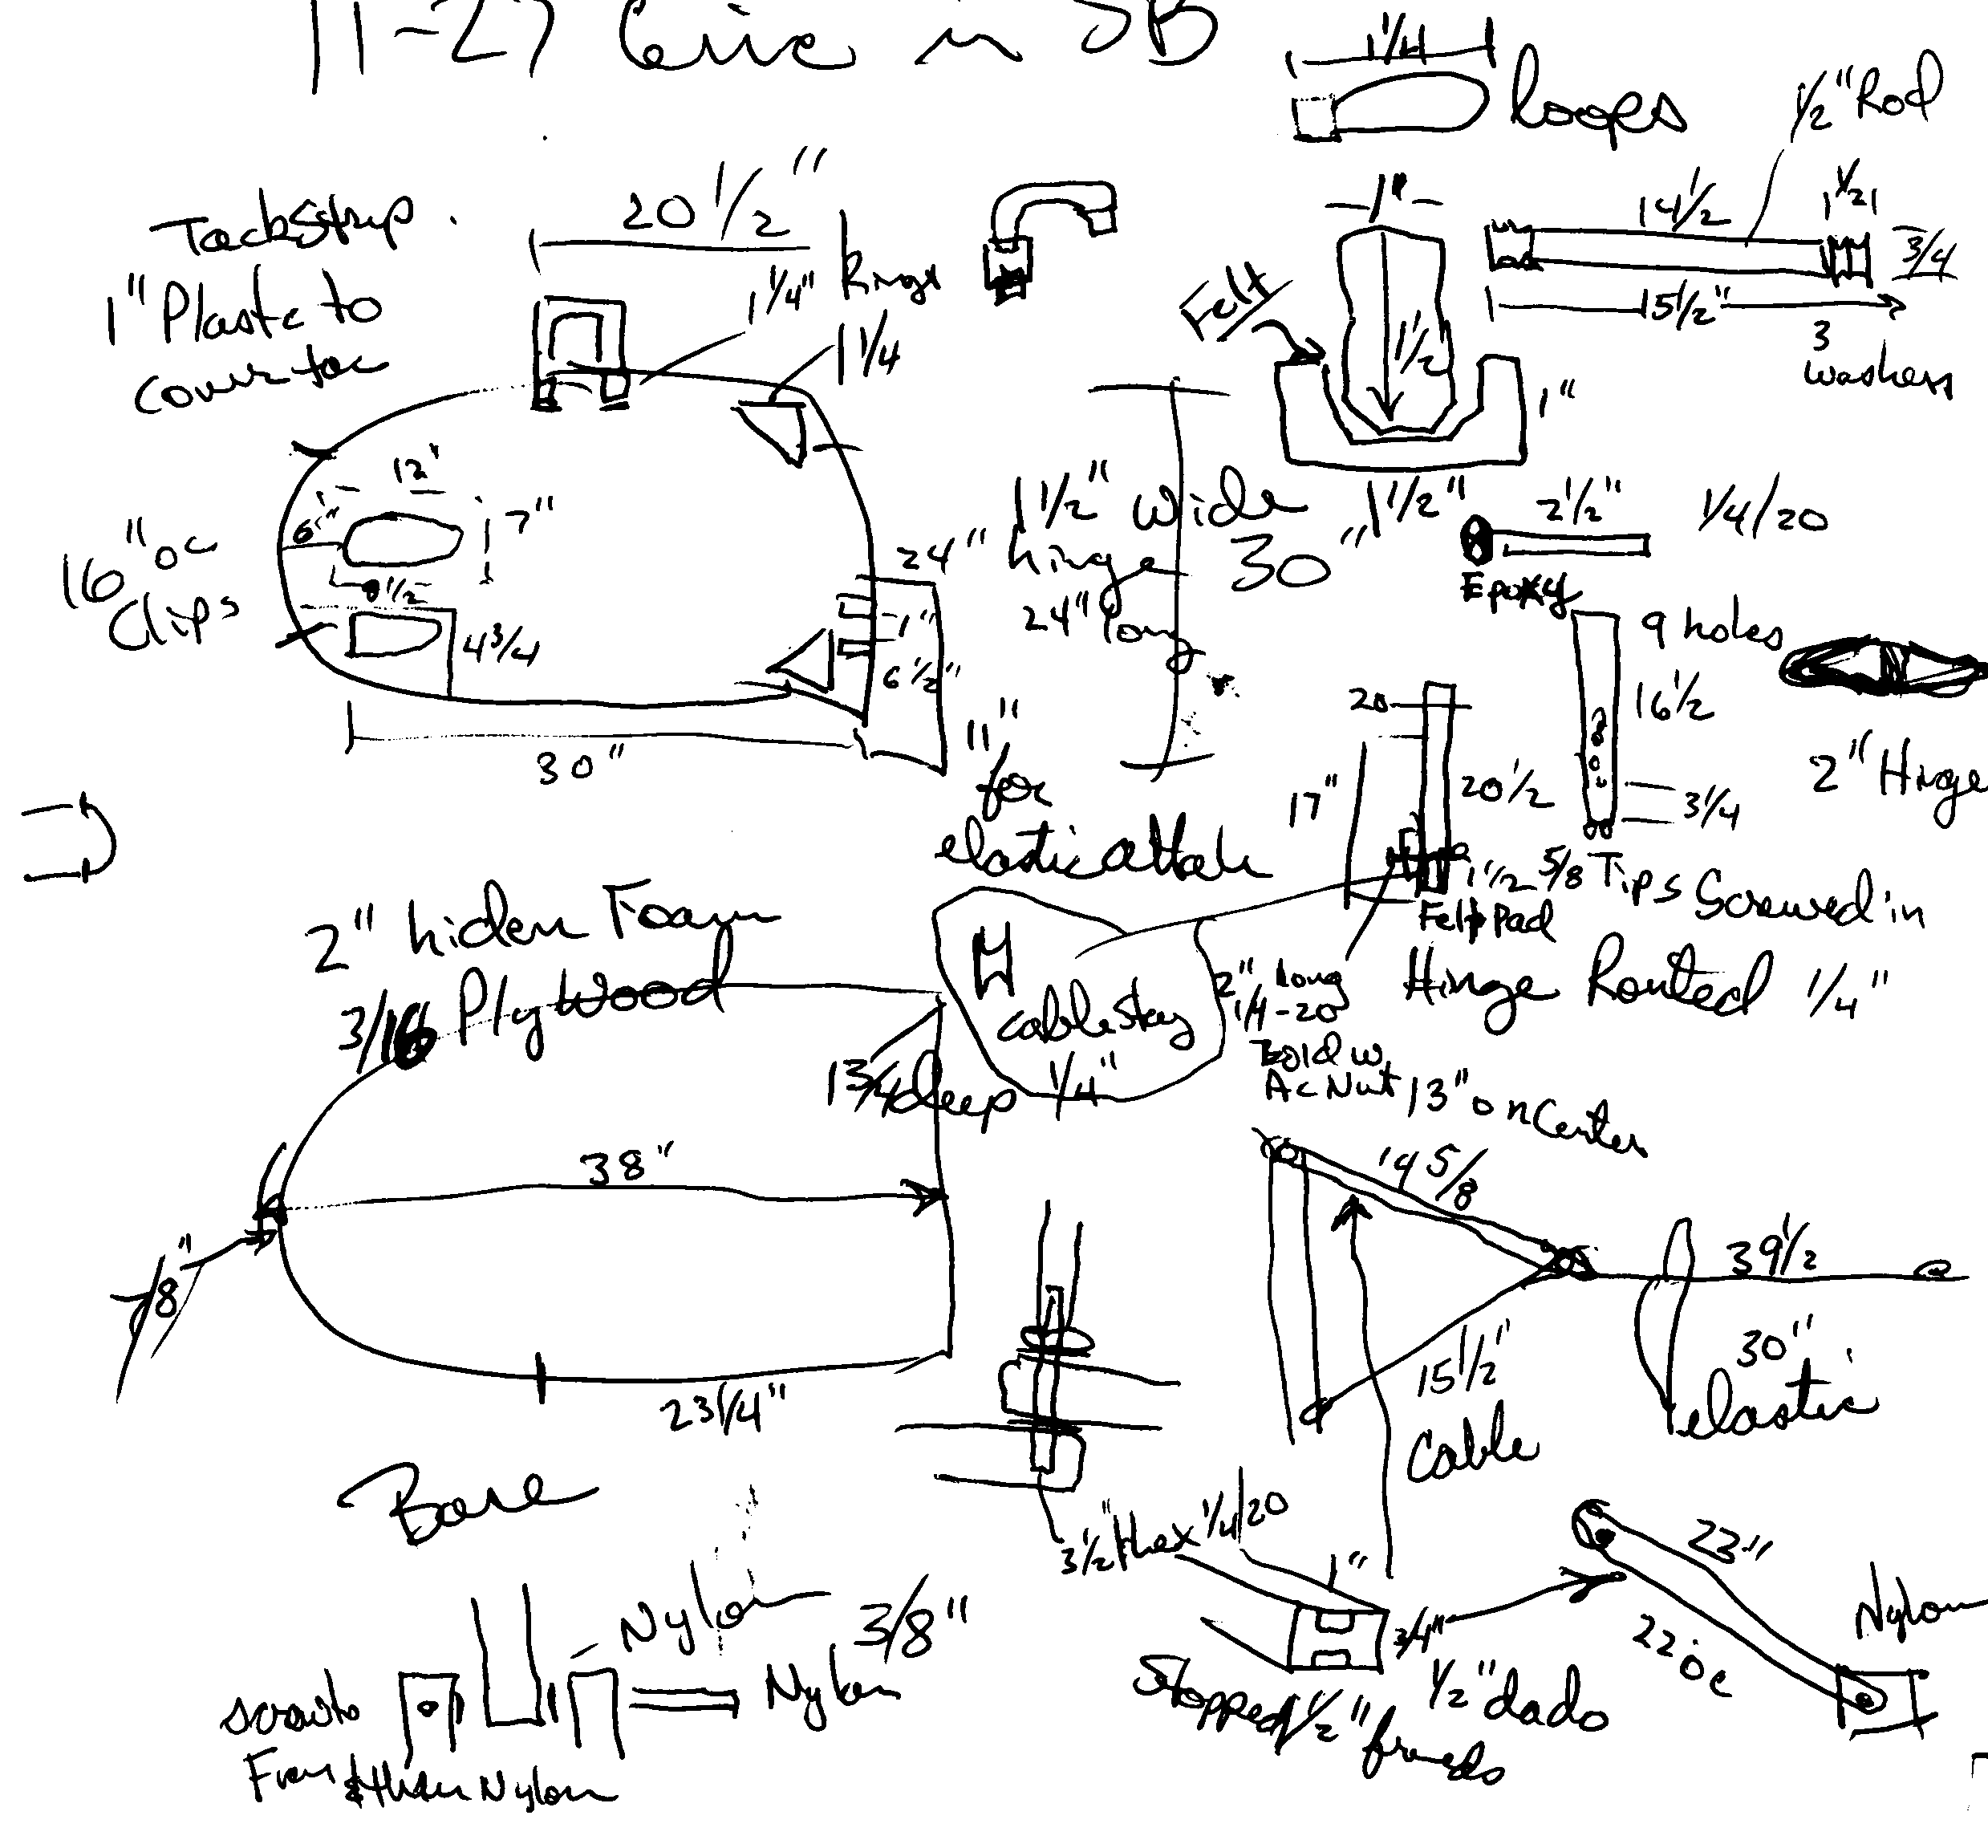 11-27
in SB
1 1/4
loops
1/2" Rod
Tackstrip
1" Plastic to
cover tac
20 1/2"
1 1/4"
Rings
1 1/4
1"
Felt
1 1/2
1"
1 1/2"
14 1/2
1/2
3/4
15 1/2"
3
washers
16" oc
Clips
12'
6"
7"
8 1/2
4 3/4
30"
24"
1"
6 1/2"
1 1/2" wide
hinge
24" long
30"
2 1/2"
1/4/20
Epoxy
9 holes
16 1/2
3 1/4
2" Hinge
11"
for
elastic attach
20
17"
20 1/2
1 1/2
5/8 Tips Screwed in
Felt Pad
Hinge Routed 1/4"
2" hiden Foam
3/16 Plywood
cable stay
1/4"
2" long
1/4-20
Bold w.
Ac Nut
1 3/4 deep
13" on Center
38"
14 5/8
39 1/2
30"
elastic
15 1/2"
Cable
23 1/4"
Base
3 1/2" Hex 1/4/20
1"
3/4"
23"
22 oc
Nylon
Stopped 1/2"
1/2" dado
Nylon
3/8"
Nylon
Nylon